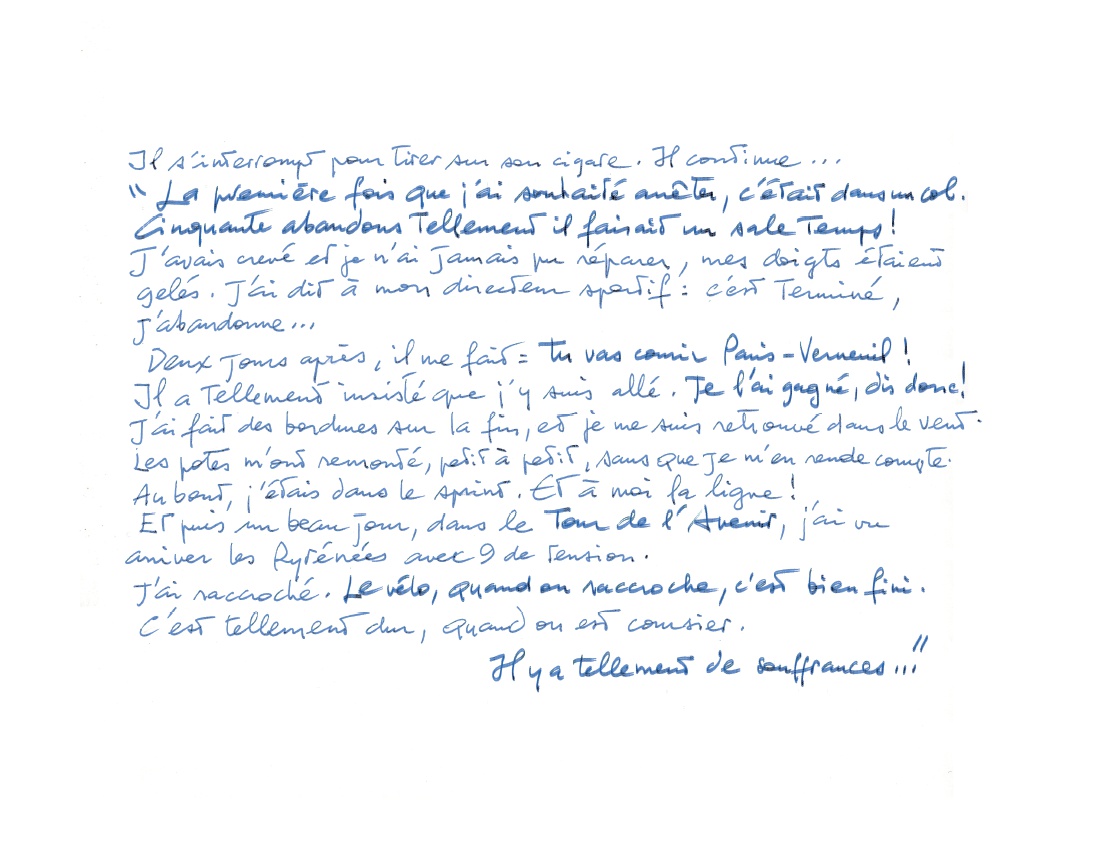 Il s'interrompt pour tirer sur son cigare. Il continue ...
" La première fois que j'ai souhaité arrêter, c'était dans un col.
Cinquante abandons tellement il faisait un sale temps !
J'avais crevé et je n'ai jamais pu réparer, mes doigts étaient
gelés. J'ai dit à mon directeur sportif : c'est terminé,
j'abandonne ...
Deux jours après, il me fait : tu vas courir Paris-Verneuil !
Il a tellement insisté que j'y suis allé. Je l'ai gagné, dis donc !
J'ai fait des bordures sur la fin, et je me suis retrouvé dans le vent.
Les potes m'ont remonté, petit à petit, sans que je m'en rende compte.
Au bout, j'étais dans le sprint. Et à moi la ligne !
Et puis un beau jour, dans le Tour de l'Avenir, j'ai vu
arriver les Pyrénées avec 9 de tension.
J'ai raccroché. Le vélo, quand on raccroche, c'est bien fini.
C'est tellement dur, quand on est coursier.
Il y a tellement de souffrances ..."